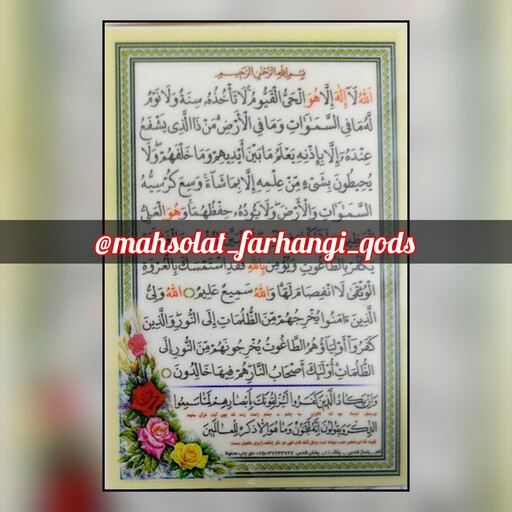 بِسْمِ اللهِ الرَّحْمٰنِ الرَّحِيمِ
اَللهُ لَآ اِلٰهَ اِلَّا هُوَ الْحَىُّ الْقَيُّومُ لَا تَأْخُذُهُ سِنَةٌ وَلَا نَوْمٌ
لَهُ مَا فِى السَّمٰوَاتِ وَمَا فِى الْاَرْضِ مَنْ ذَا الَّذِى يَشْفَعُ
عِنْدَهُ اِلَّا بِاِذْنِهِ يَعْلَمُ مَا بَيْنَ اَيْدِيهِمْ وَمَا خَلْفَهُمْ وَلَا
يُحِيطُونَ بِشَىْءٍ مِنْ عِلْمِهِ اِلَّا بِمَا شَآءَ وَسِعَ كُرْسِيُّهُ
السَّمٰوَاتِ وَالْاَرْضَ وَلَا يَؤُدُهُ حِفْظُهُمَا وَهُوَ الْعَلِىُّ
@mahsolat_farhangi_qods
يَكْفُرْ بِالطَّاغُوتِ وَيُؤْمِنْ بِاللهِ فَقَدِ اسْتَمْسَكَ بِالْعُرْوَةِ
الْوُثْقٰى لَا انْفِصَامَ لَهَا وَاللهُ سَمِيعٌ عَلِيمٌ اَللهُ وَلِىُّ
الَّذِينَ ءَامَنُوا يُخْرِجُهُمْ مِنَ الظُّلُمَاتِ اِلَى النُّورِ وَالَّذِينَ
كَفَرُوٓا اَوْلِيَآؤُهُمُ الطَّاغُوتُ يُخْرِجُونَهُمْ مِنَ النُّورِ اِلَى
الظُّلُمَاتِ اُولٰٓئِكَ اَصْحَابُ النَّارِ هُمْ فِيهَا خَالِدُونَ
وَاِنْ يَكَادُ الَّذِينَ كَفَرُوا لَيُزْلِقُونَكَ بِاَبْصَارِهِمْ لَمَّا سَمِعُوا
الذِّكْرَ وَيَقُولُونَ اِنَّهُ لَمَجْنُونٌ وَمَا هُوَ اِلَّا ذِكْرٌ لِلْعَالَمِينَ